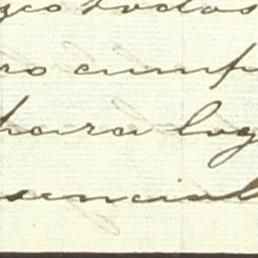 zco todos
ro cump
hara log
sencial